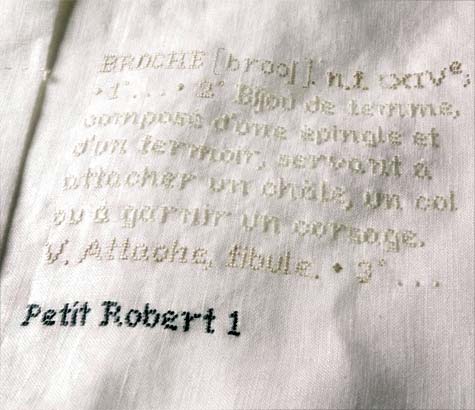 BROCHE [brɔʃ]. n.f. (XIVe;
• 1° ... • 2° Bijou de femme,
composé d'une épingle et
d'un fermoir, servant à
attacher un châle, un col
ou à garnir un corsage.
V. Attache, fibule. • 3° ...
Petit Robert 1